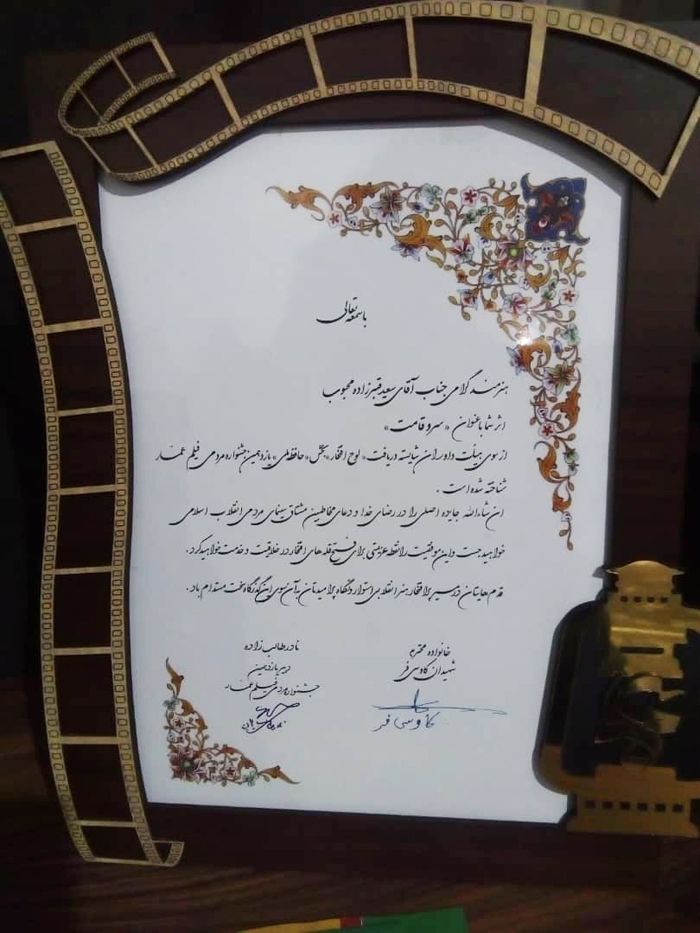 باسمه تعالی
هنرمند گرامی جناب آقای سعید قنبرزاده محبوب
اثر شما با عنوان «سرو قامت»
از سوی هیأت داوران شایسته دریافت «لوح افتخار» بخش «حافظه ملی» یازدهمین جشنواره مردمی فیلم عمار
شناخته شده است.
ان شاءالله جایزه اصلی را در رضای خدا و دعای مخاطبین مشتاق سینمای مردمی انقلاب اسلامی
خواهید جست و این موفقیت را نقطه عزیمتی برای فتح قله های افتخار در خلاقیت و خدمت خواهید کرد.
قدم هایتان در مسیر پر افتخار هنر انقلابی استوار و نگاه پر امیدتان به آن سوی این گذرگاه سخت مستدام باد.
خانواده محترم
شهیدان کاوسی فر
کاوسی فر
نادر طالب زاده
دبیر یازدهمین
جشنواره مردمی فیلم عمار